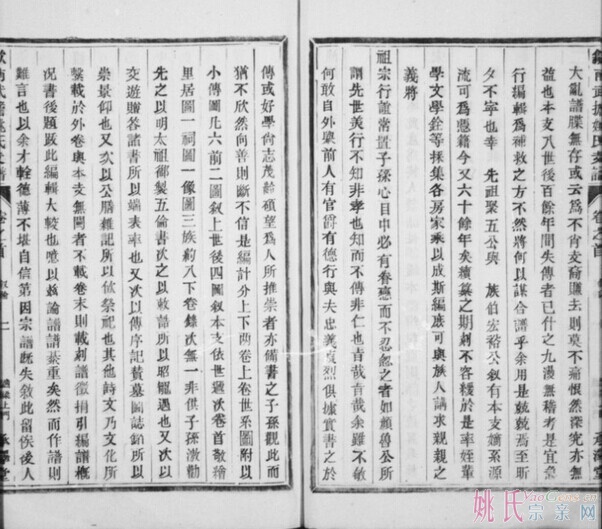 大亂譜牒無存或云為不肖支裔賺去則莫不痛恨然深究亦無
益也本支八世後百餘年間失傳者已什之九漫無稽考是宜亟
行編輯為補救之方不然將何以謀合譜乎余用是兢兢焉至昕
夕不寧也幸 先祖聚五公與 族伯宏裕公敘有本支嫡系源
流可為憑藉今又六十餘年矣續纂之期刻不容緩於是率姪輩
學文學銓等採集各房家乘以成斯編庶可與族人講求親親之
義將
祖宗行誼常置子孫心目中必有眷戀而不忍忽之者如顏魯公所
謂先世美行不知非孝也知而不傳非仁也旨哉旨哉余雖不敏
何敢自外與前人有官爵有德行與夫忠義貞烈俱據實書之於
傳或好學尚志茂齡碩望為人所推崇者亦備書之子孫觀此而
猶不欣然向善則斷不信是編計分上下兩卷上卷世系圖附以
小傳圖凡六前二圖敘上世後四圖敘本支依世遞次卷首敬繪
里居圖一祠圖一像圖三族約八下卷雖次無一非供子孫激勸
先之以明太祖御製五倫書次之以敕諭所以昭寵遇也次以
交遊贈答諸書所以端表率也又次以傳序記贊墓圖誌銘所以
崇景仰也又次以公膳雜記所以攸祭祀也其他詩文乃文化所
繫載於外卷與本支無關者不載卷末則載刻譜徵捐引編譜概
况書後題跋此編輯大較也噫以茲論譜譜綦重矣然而作譜則
難言也以余才輇德薄不堪自信第因宗譜歷失敘此留俟後人
卷之首
一
承澤堂
姚氏宗亲网
YaoGens.cn